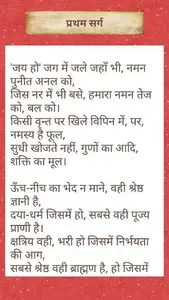 प्रथम सर्ग
'जय हो' जग में जले जहाँ भी, नमन
पुनीत अनल को,
जिस नर में भी बसे, हमारा नमन तेज
को, बल को।
किसी वृन्त पर खिले विपिन में, पर,
नमस्य है फूल,
सुधी खोजते नहीं, गुणों का आदि,
शक्ति का मूल।
ऊँच-नीच का भेद न माने, वही श्रेष्ठ
ज्ञानी है,
दया-धर्म जिसमें हो, सबसे वही पूज्य
प्राणी है।
क्षत्रिय वही, भरी हो जिसमें निर्भयता
की आग,
सबसे श्रेष्ठ वही ब्राह्मण है, हो जिसमें